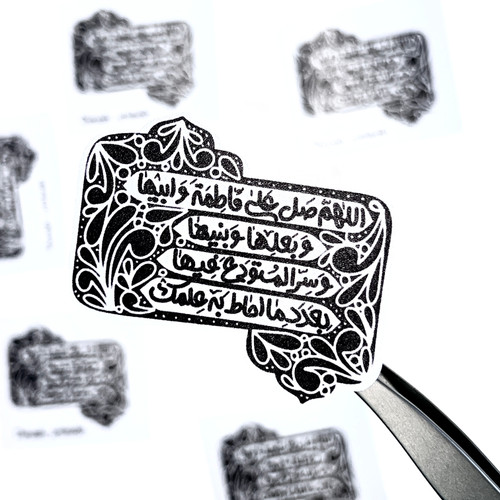 اللهم صل على فاطمة و ابيها
و بعلها و بنيها
و سر المستودع فيها
بعدد ما احاط به علمك